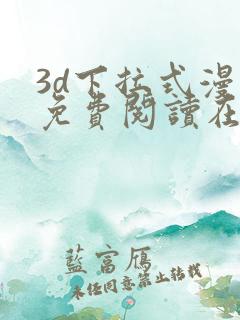 3d下拉式漫
免費閱讀在
藍富雁
未经同意禁止转载